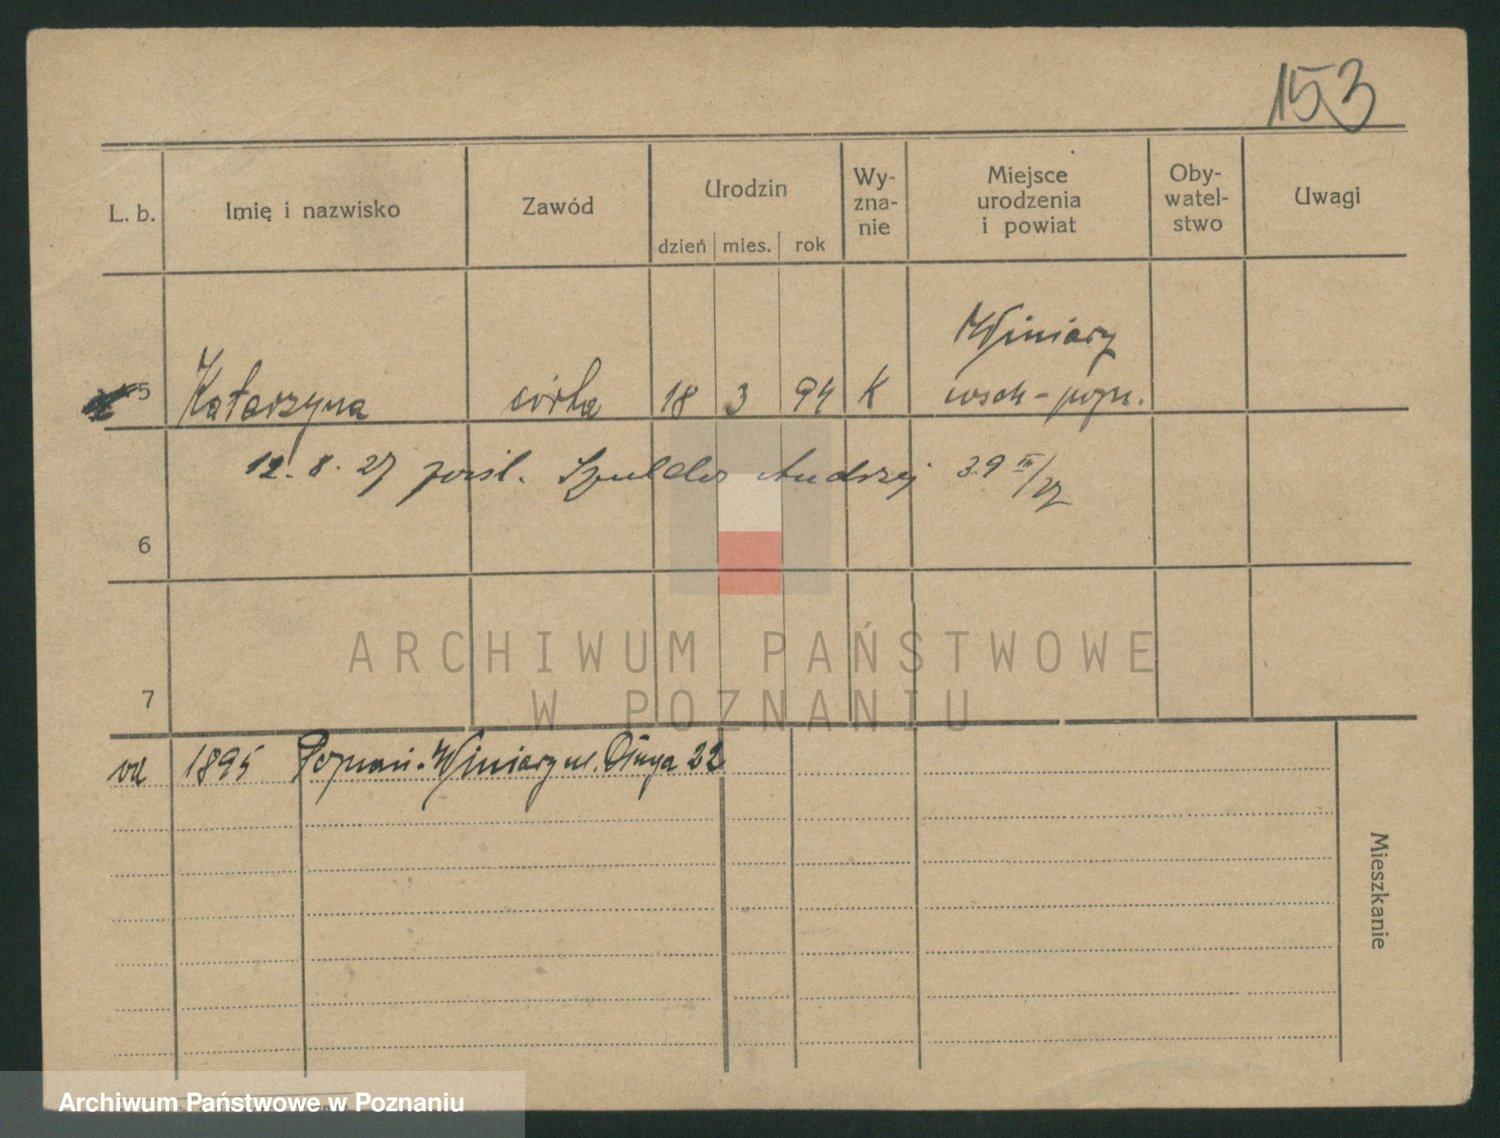 153
L. b. Imię i nazwisko Zawód Urodzin dzień mies. rok Wy-zna-nie Miejsce urodzenia i powiat Oby-watel-stwo Uwagi
Winiary
5 Katarzyna córka 18 3 94 K wsch-pozn.
12. 8. 27 pośl. Andrzej
6
7
od 1895 Poznań-Winiary ul. Długa 22
Mieszkanie
ARCHIWUM PAŃSTWOWE
W POZNANIU
Archiwum Państwowe w Poznaniu